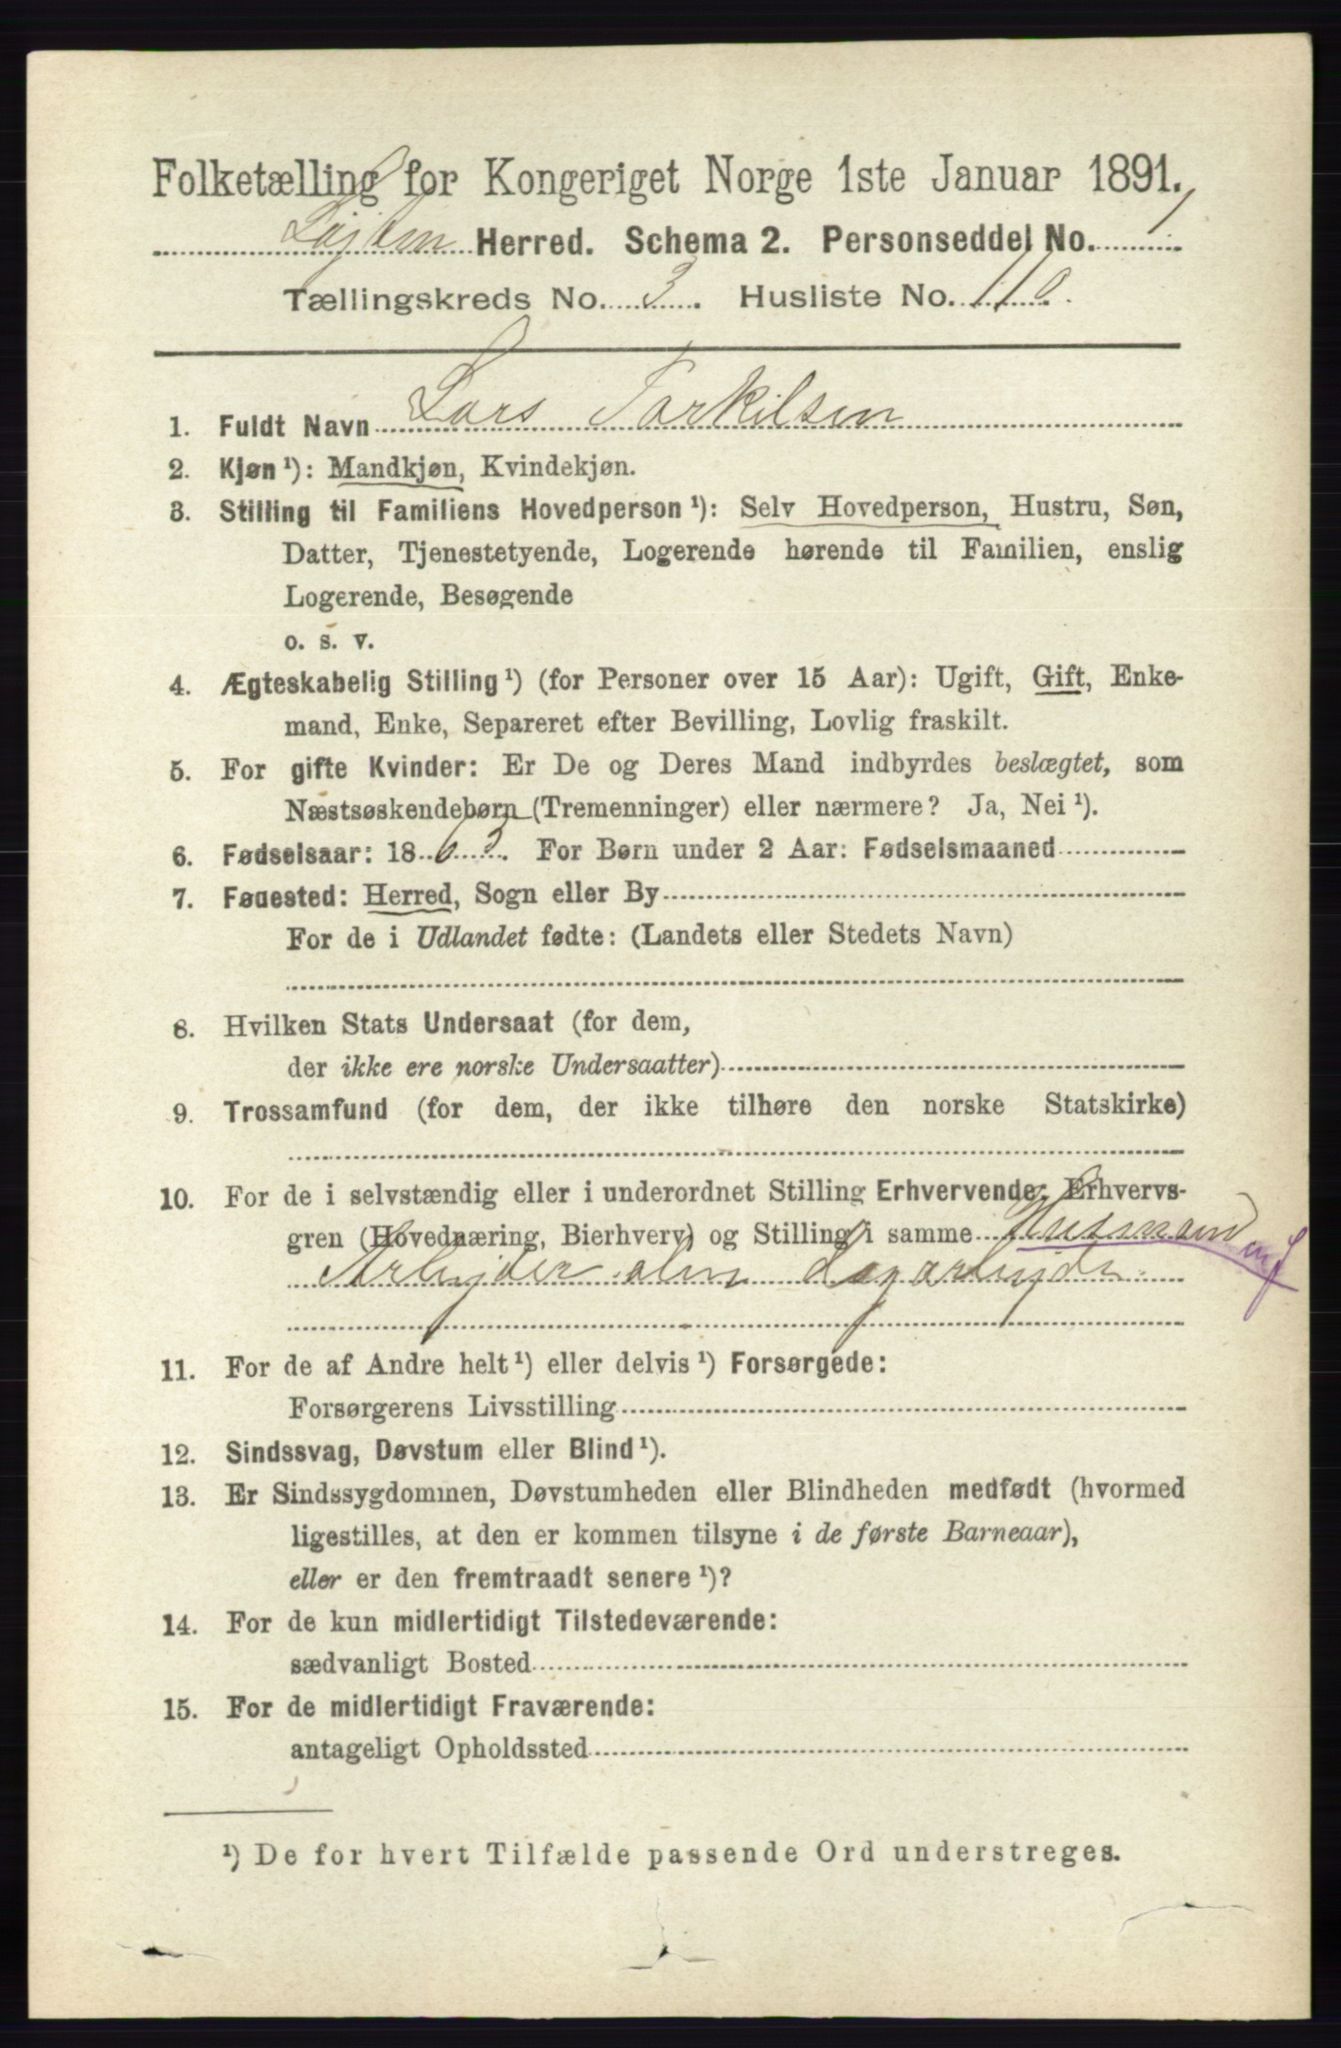 Folketælling for Kongeriget Norge 1ste Januar 1891.
Herred. Schema 2. Personseddel No. 1
Tællingskreds No. 3. Husliste No. 110.
1. Fuldt Navn Lars Torkilsen
2. Kjøn¹): Mandkjøn, Kvindekjøn.
3. Stilling til Familiens Hovedperson¹): Selv Hovedperson, Hustru, Søn,
Datter, Tjenestetyende, Logerende hørende til Familien, enslig
Logerende, Besøgende
o. s. v.
4. Ægteskabelig Stilling¹) (for Personer over 15 Aar): Ugift, Gift, Enke-
mand, Enke, Separeret efter Bevilling, Lovlig fraskilt.
5. For gifte Kvinder: Er De og Deres Mand indbyrdes beslægtet, som
Næstsøskendebørn (Tremenninger) eller nærmere? Ja, Nei¹).
6. Fødselsaar: 1863. For Børn under 2 Aar: Fødselsmaaned
7. Fødested: Herred, Sogn eller By
For de i Udlandet fødte: (Landets eller Stedets Navn)
8. Hvilken Stats Undersaat (for dem,
der ikke ere norske Undersaatter)
9. Trossamfund (for dem, der ikke tilhøre den norske Statskirke)
10. For de i selvstændig eller i underordnet Stilling Erhvervende: Erhvervs-
gren (Hovednæring, Bierhverv) og Stilling i samme Husmand mj
Arbejder alm Dagarbejde
11. For de af Andre helt¹) eller delvis¹) Forsørgede:
Forsørgerens Livsstilling
12. Sindssvag, Døvstum eller Blind¹).
13. Er Sindssygdommen, Døvstumheden eller Blindheden medfødt (hvormed
ligestilles, at den er kommen tilsyne i de første Barneaar),
eller er den fremtraadt senere¹)?
14. For de kun midlertidigt Tilstedeværende:
sædvanligt Bosted
15. For de midlertidigt Fraværende:
antageligt Opholdssted
¹) De for hvert Tilfælde passende Ord understreges.